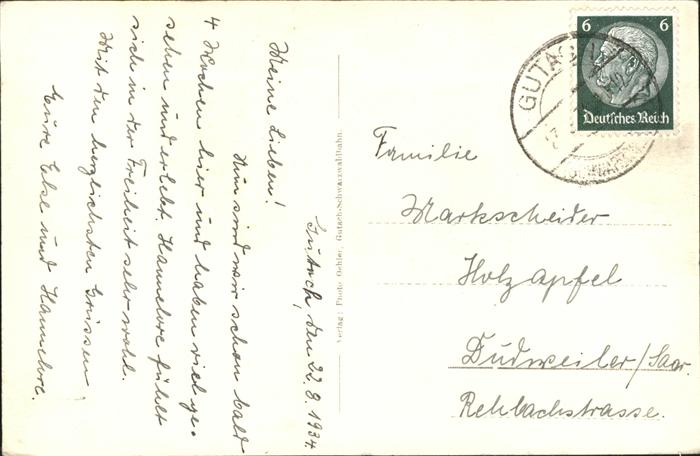 Gutach, den 22.8.1934
Meine Lieben!
Nun sind wir schon bald
4 Wochen hier und haben viel ge-
sehen und erlebt. Hannelore fühlt
sich in der Freiheit sehr wohl.
Mit den herzlichsten Grüssen
Eure Else und Hannelore.
Verlag: Photo Gehler, Gutach-Schwarzwaldbahn.
6 6
Deutsches Reich
GUTACH
Familie
Markscheider
Holzapfel
Dudweiler/Saar.
Rehbachstrasse.